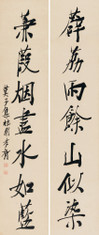 薜荔雨餘山似染
蒹葭烟盡水如藍